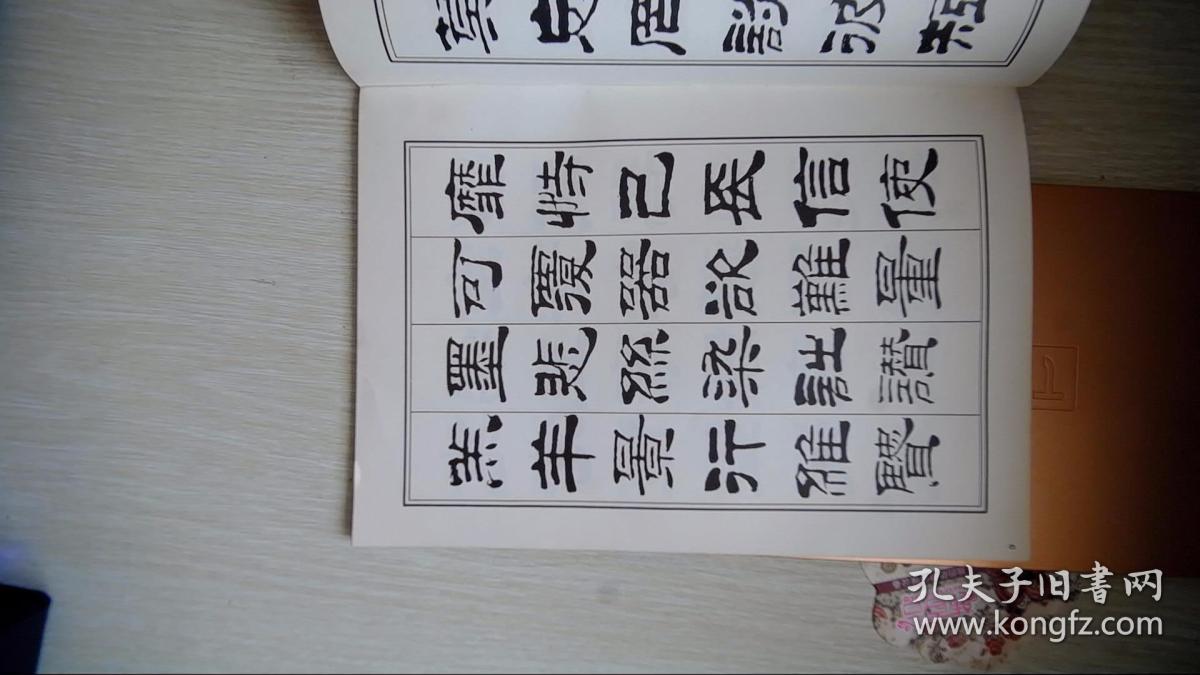 靡恃己長信使
可覆器欲難量
墨悲絲染詩讚
羔羊景行維賢
孔夫子旧书网
www.kongfz.com